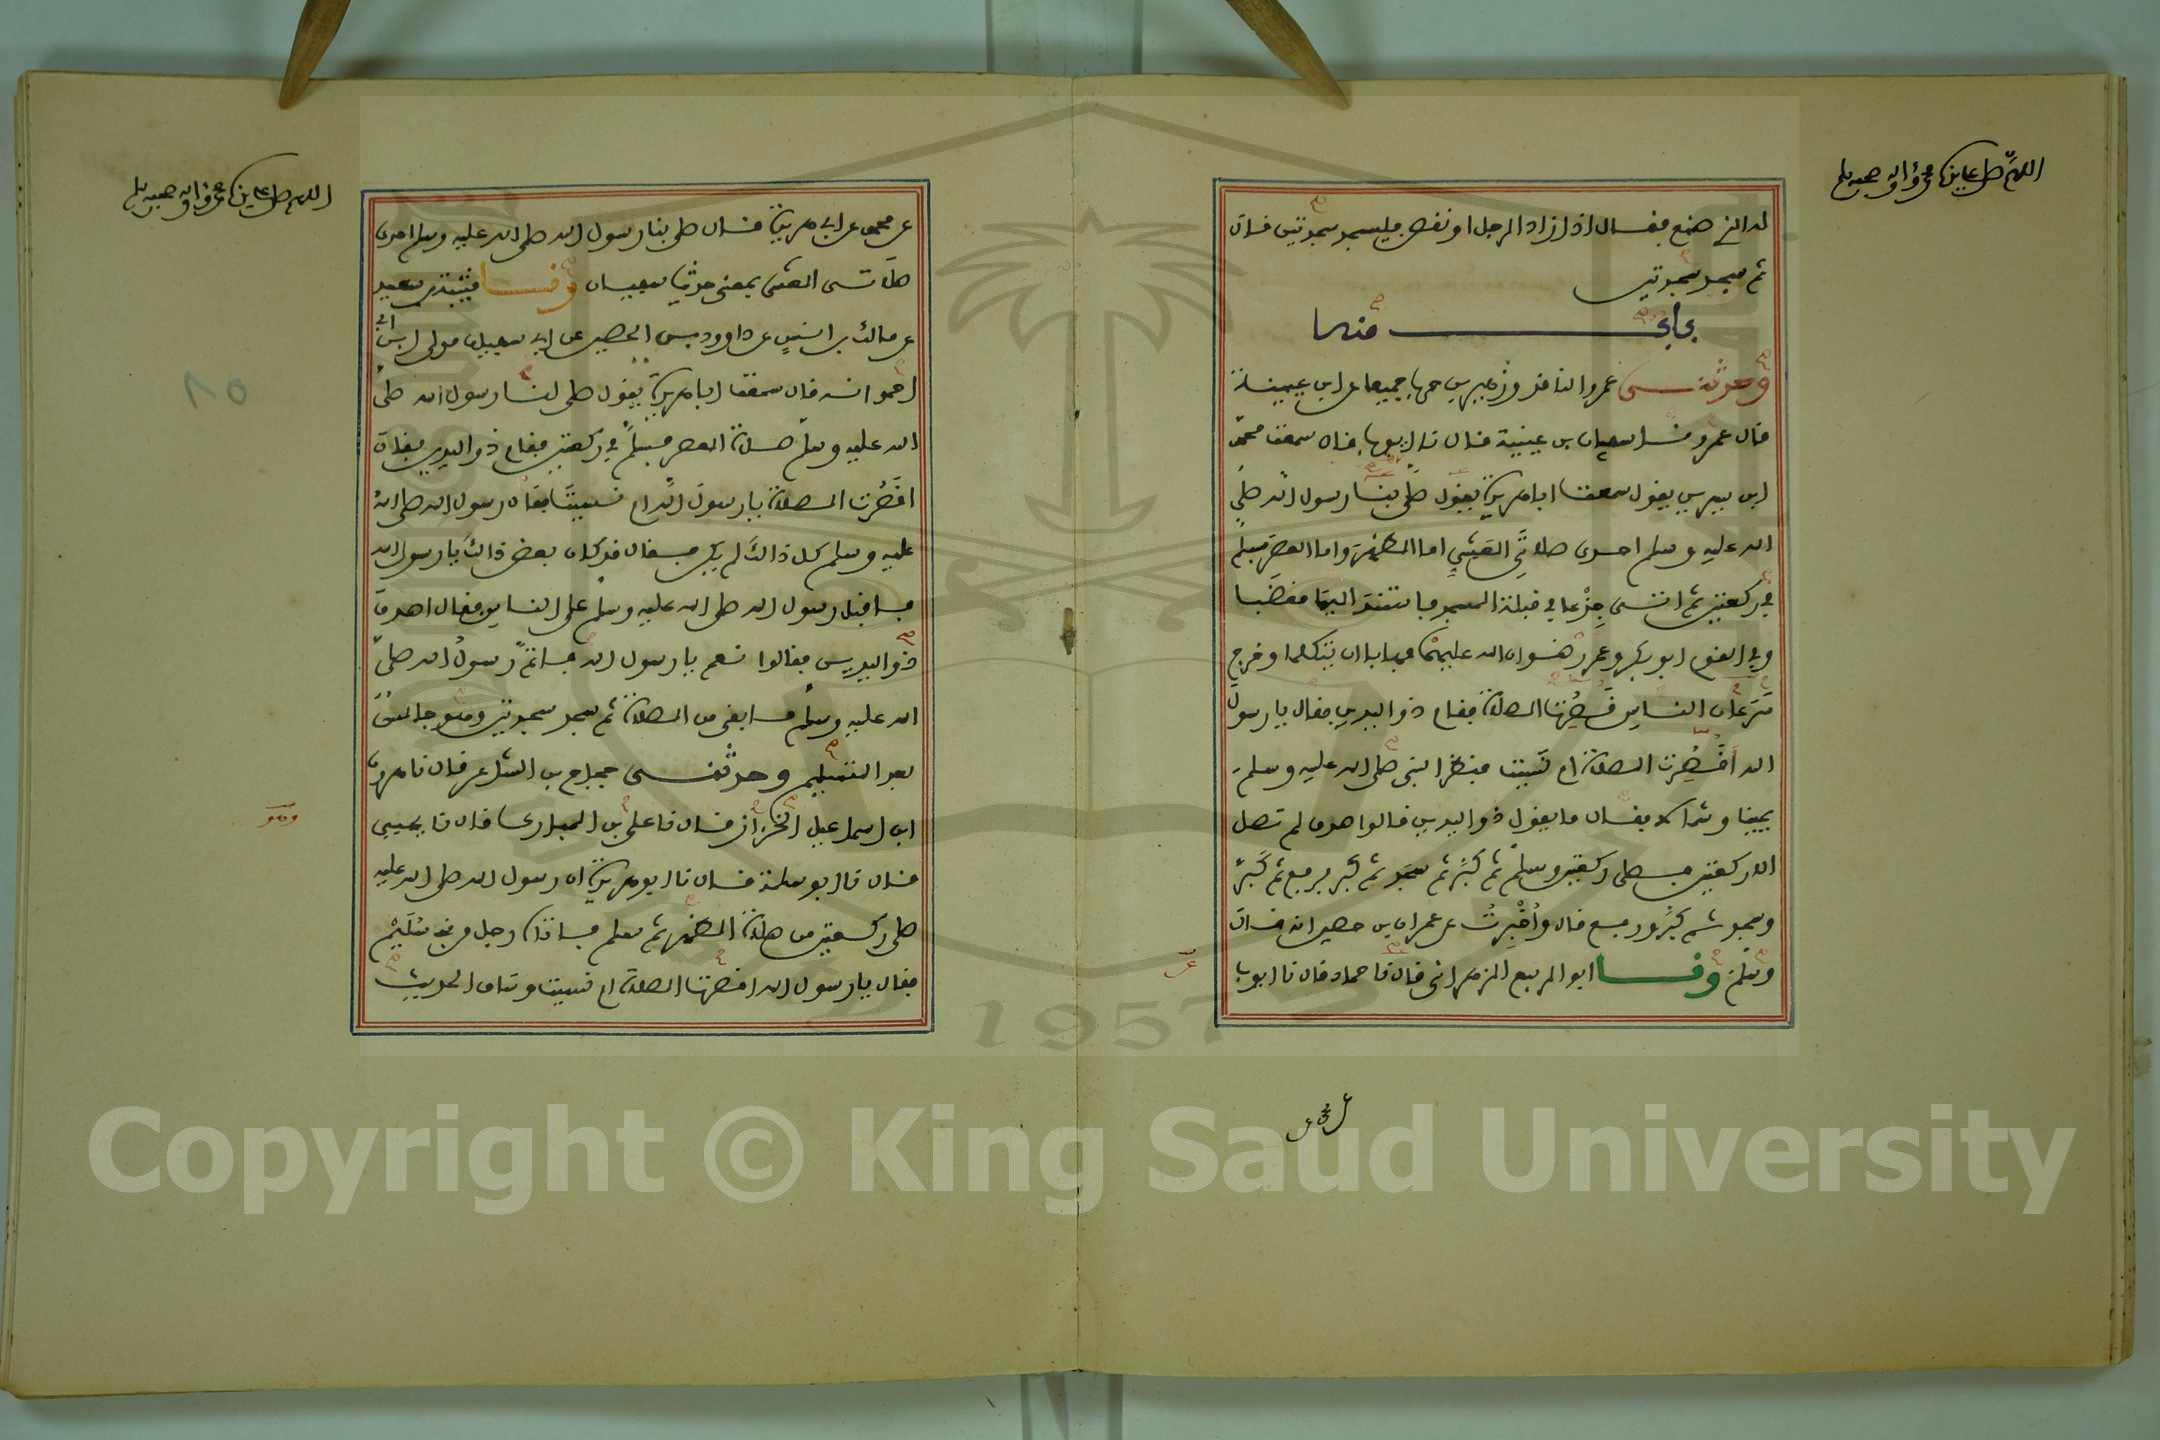 اللهم صل على سيدنا محمد وآله وصحبه وسلم
له الذي صنع فقال اذا زاد الرجل او نقص فليسجد سجدتين قال
ثم سجد سجدتين
باب منه
وحدثني عمرو الناقد وزهير بن حرب جميعا عن ابن عيينة
قال عمرو نا سفيان بن عيينة قال نا ايوب قال سمعت محمد
ابن سيرين يقول سمعت ابا هريرة يقول صلى بنا رسول الله صلى
الله عليه وسلم احدى صلاتي العشي اما الظهر واما العصر فسلم
في ركعتين ثم اتى جذعا في قبلة المسجد فاستند اليها مغضبا
وفي القوم ابو بكر وعمر رضوان الله عليهما فهابا ان يتكلما وخرج
سرعان الناس قصرت الصلاة فقام ذو اليدين فقال يا رسول
الله اقصرت الصلاة ام نسيت فنظر النبي صلى الله عليه وسلم
يمينا وشمالا فقال ما يقول ذو اليدين قالوا صدق لم تصل
الا ركعتين فصلى ركعتين وسلم ثم كبر ثم سجد ثم كبر فرفع ثم كبر
وسجد ثم كبر ورفع قال وأخبرت عن عمران بن حصين انه قال
وسلم ونا ابو الربيع الزهراني قال نا حماد قال نا ايوب
عن محمد عن
عن
اللهم صل على سيدنا محمد وآله وصحبه وسلم
عن محمد عن ابي هريرة قال صلى بنا رسول الله صلى الله عليه وسلم احدى
صلاتي العشي بمعنى حديث سفيان ونا قتيبة بن سعيد
عن مالك بن انس عن داوود بن الحصين عن ابي سفيان مولى ابن ابي
احمد انه قال سمعت ابا هريرة يقول صلى لنا رسول الله صلى
الله عليه وسلم صلاة العصر فسلم في ركعتين فقام ذو اليدين فقال
اقصرت الصلاة يا رسول الله ام نسيت فقال رسول الله صلى الله
عليه وسلم كل ذالك لم يكن فقال قد كان بعض ذالك يا رسول الله
فاقبل رسول الله صلى الله عليه وسلم على الناس فقال اصدق
ذو اليدين فقالوا نعم يا رسول الله فاتم رسول الله صلى
الله عليه وسلم ما بقي من الصلاة ثم سجد سجدتين وهو جالس
بعد التسليم وحدثني حجاج بن الشاعر قال نا هرون
ابن اسماعيل الخزاز قال نا علي بن المبارك قال نا يحيى
قال نا ابو سلمة قال نا ابو هريرة ان رسول الله صلى الله عليه
صلى ركعتين من صلاة الظهر ثم سلم فاتاه رجل من بني سليم
فقال يا رسول الله اقصرت الصلاة ام نسيت وساق الحديث
وهو
٨٥
1957
Copyright © King Saud University